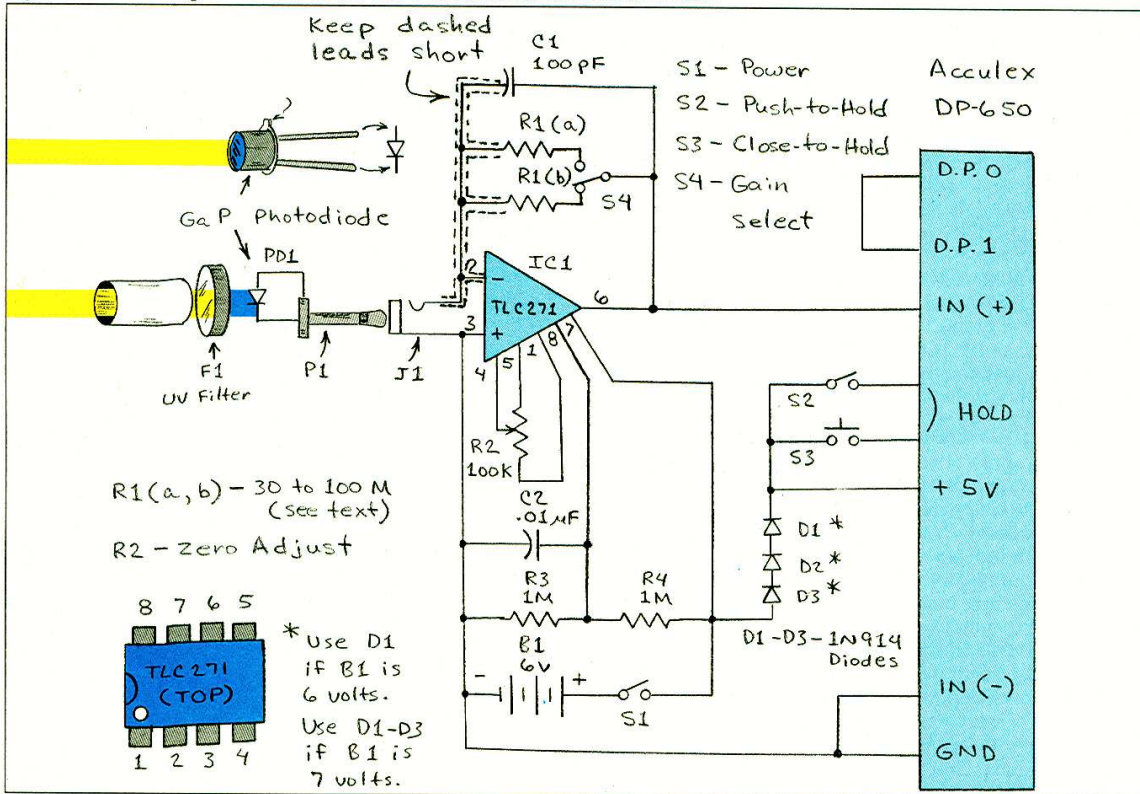 Keep dashed
leads short
C1
100pF
S1 - Power
S2 - Push-to-Hold
S3 - Close-to-Hold
S4 - Gain
Select
Acculex
DP-650
R1(a)
R1(b)
S4
GaP Photodiode
PD1
F1
UV Filter
P1
J1
IC1
TLC271
2
3
4
5
1
8
7
6
-
+
R2
100K
C2
.01µF
R3
1M
R4
1M
B1
6V
-
+
S1
S2
S3
D1 *
D2 *
D3 *
D1-D3-1N914
Diodes
D.P.0
D.P.1
IN (+)
) HOLD
+ 5V
IN (-)
GND
R1(a,b) - 30 to 100 M
(see text)
R2 - Zero Adjust
8 7 6 5
TLC271
(TOP)
1 2 3 4
* Use D1
if B1 is
6 volts.
Use D1-D3
if B1 is
7 volts.